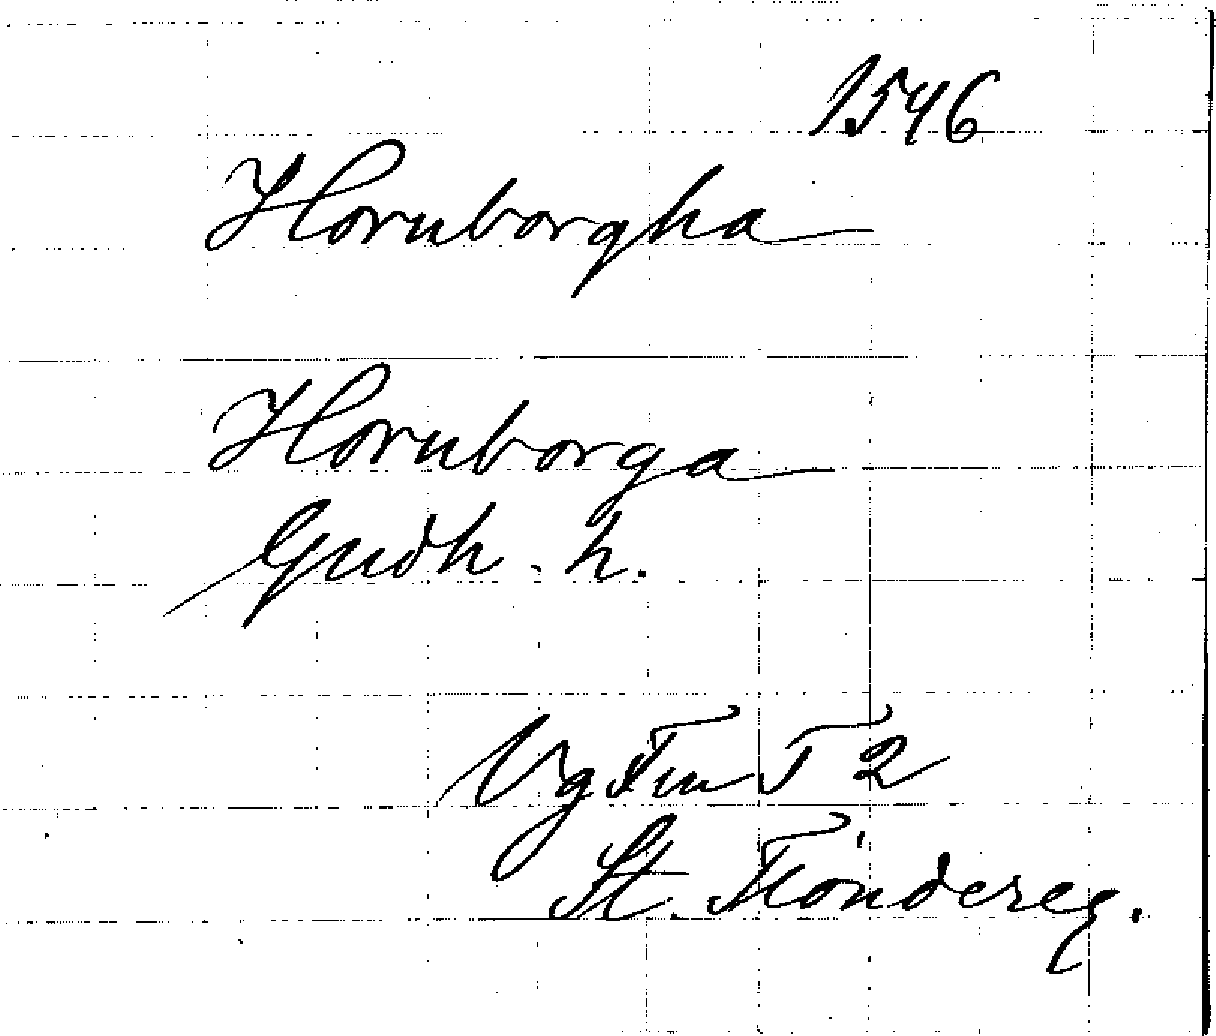 1546
Hornborgha
Hornborga
Gudh. h.
Vg Tm T 2
St. Tiondereg.